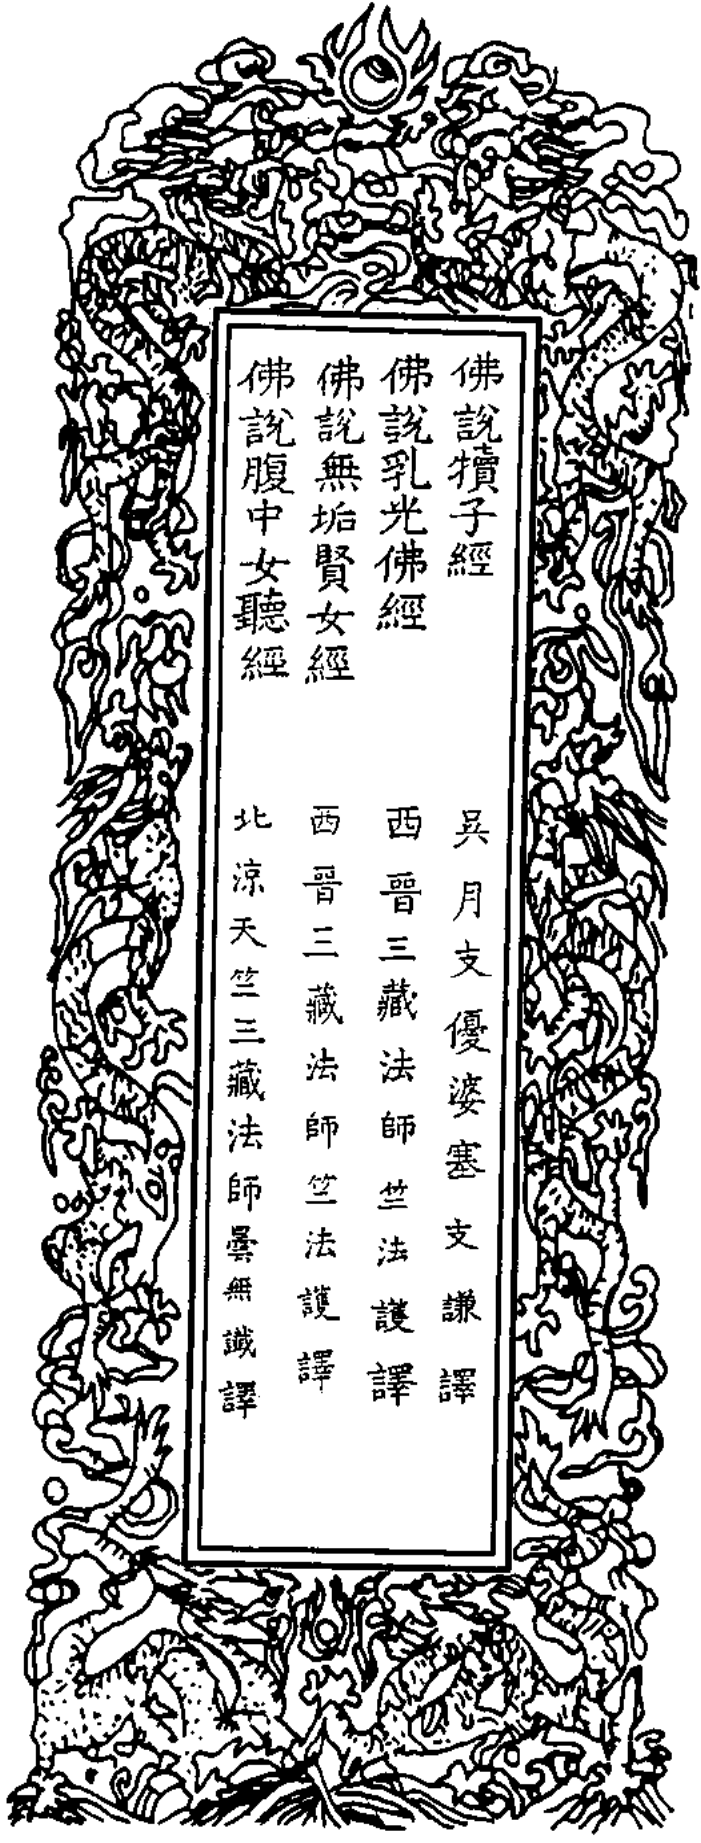 佛說犢子經 吳月支優婆塞支謙譯
佛說乳光佛經 西晉三藏法師竺法護譯
佛說無垢賢女經 西晉三藏法師竺法護譯
佛說腹中女聽經 北涼天竺三藏法師曇無讖譯